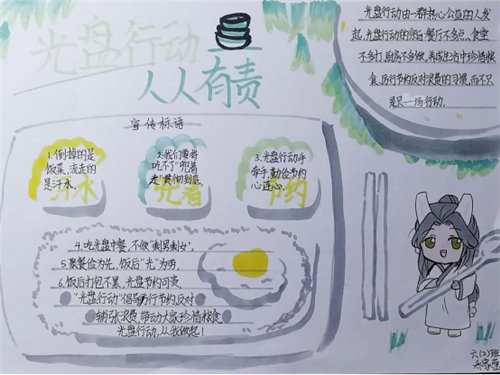 光盘行动
人人有责
光盘行动由一群热心公益的人发
起,光盘行动的宗旨:餐厅不多点、食堂
不多打、厨房不多做,养成生活中珍惜粮
食、厉行节约反对浪费的习惯,而不只
是只一场行动。
宣传标语
1.倒掉的是
饭菜,流走的
是汗水。
汗水
2.我们要将
吃不了"兜着
走"贯彻到底。
兜着
3.光盘行动手
牵手,勤俭节约
心连心。
节约
4.吃光盘中餐,不做"剩男剩台"。
5.聚餐俭为先,饭后"光"为荣,
6.饭后打包不累,光盘节约可贵
"光盘行动"倡导厉行节约反对
铺张浪费带动大家珍惜粮食
光盘行动,从我做起!
六(2)班